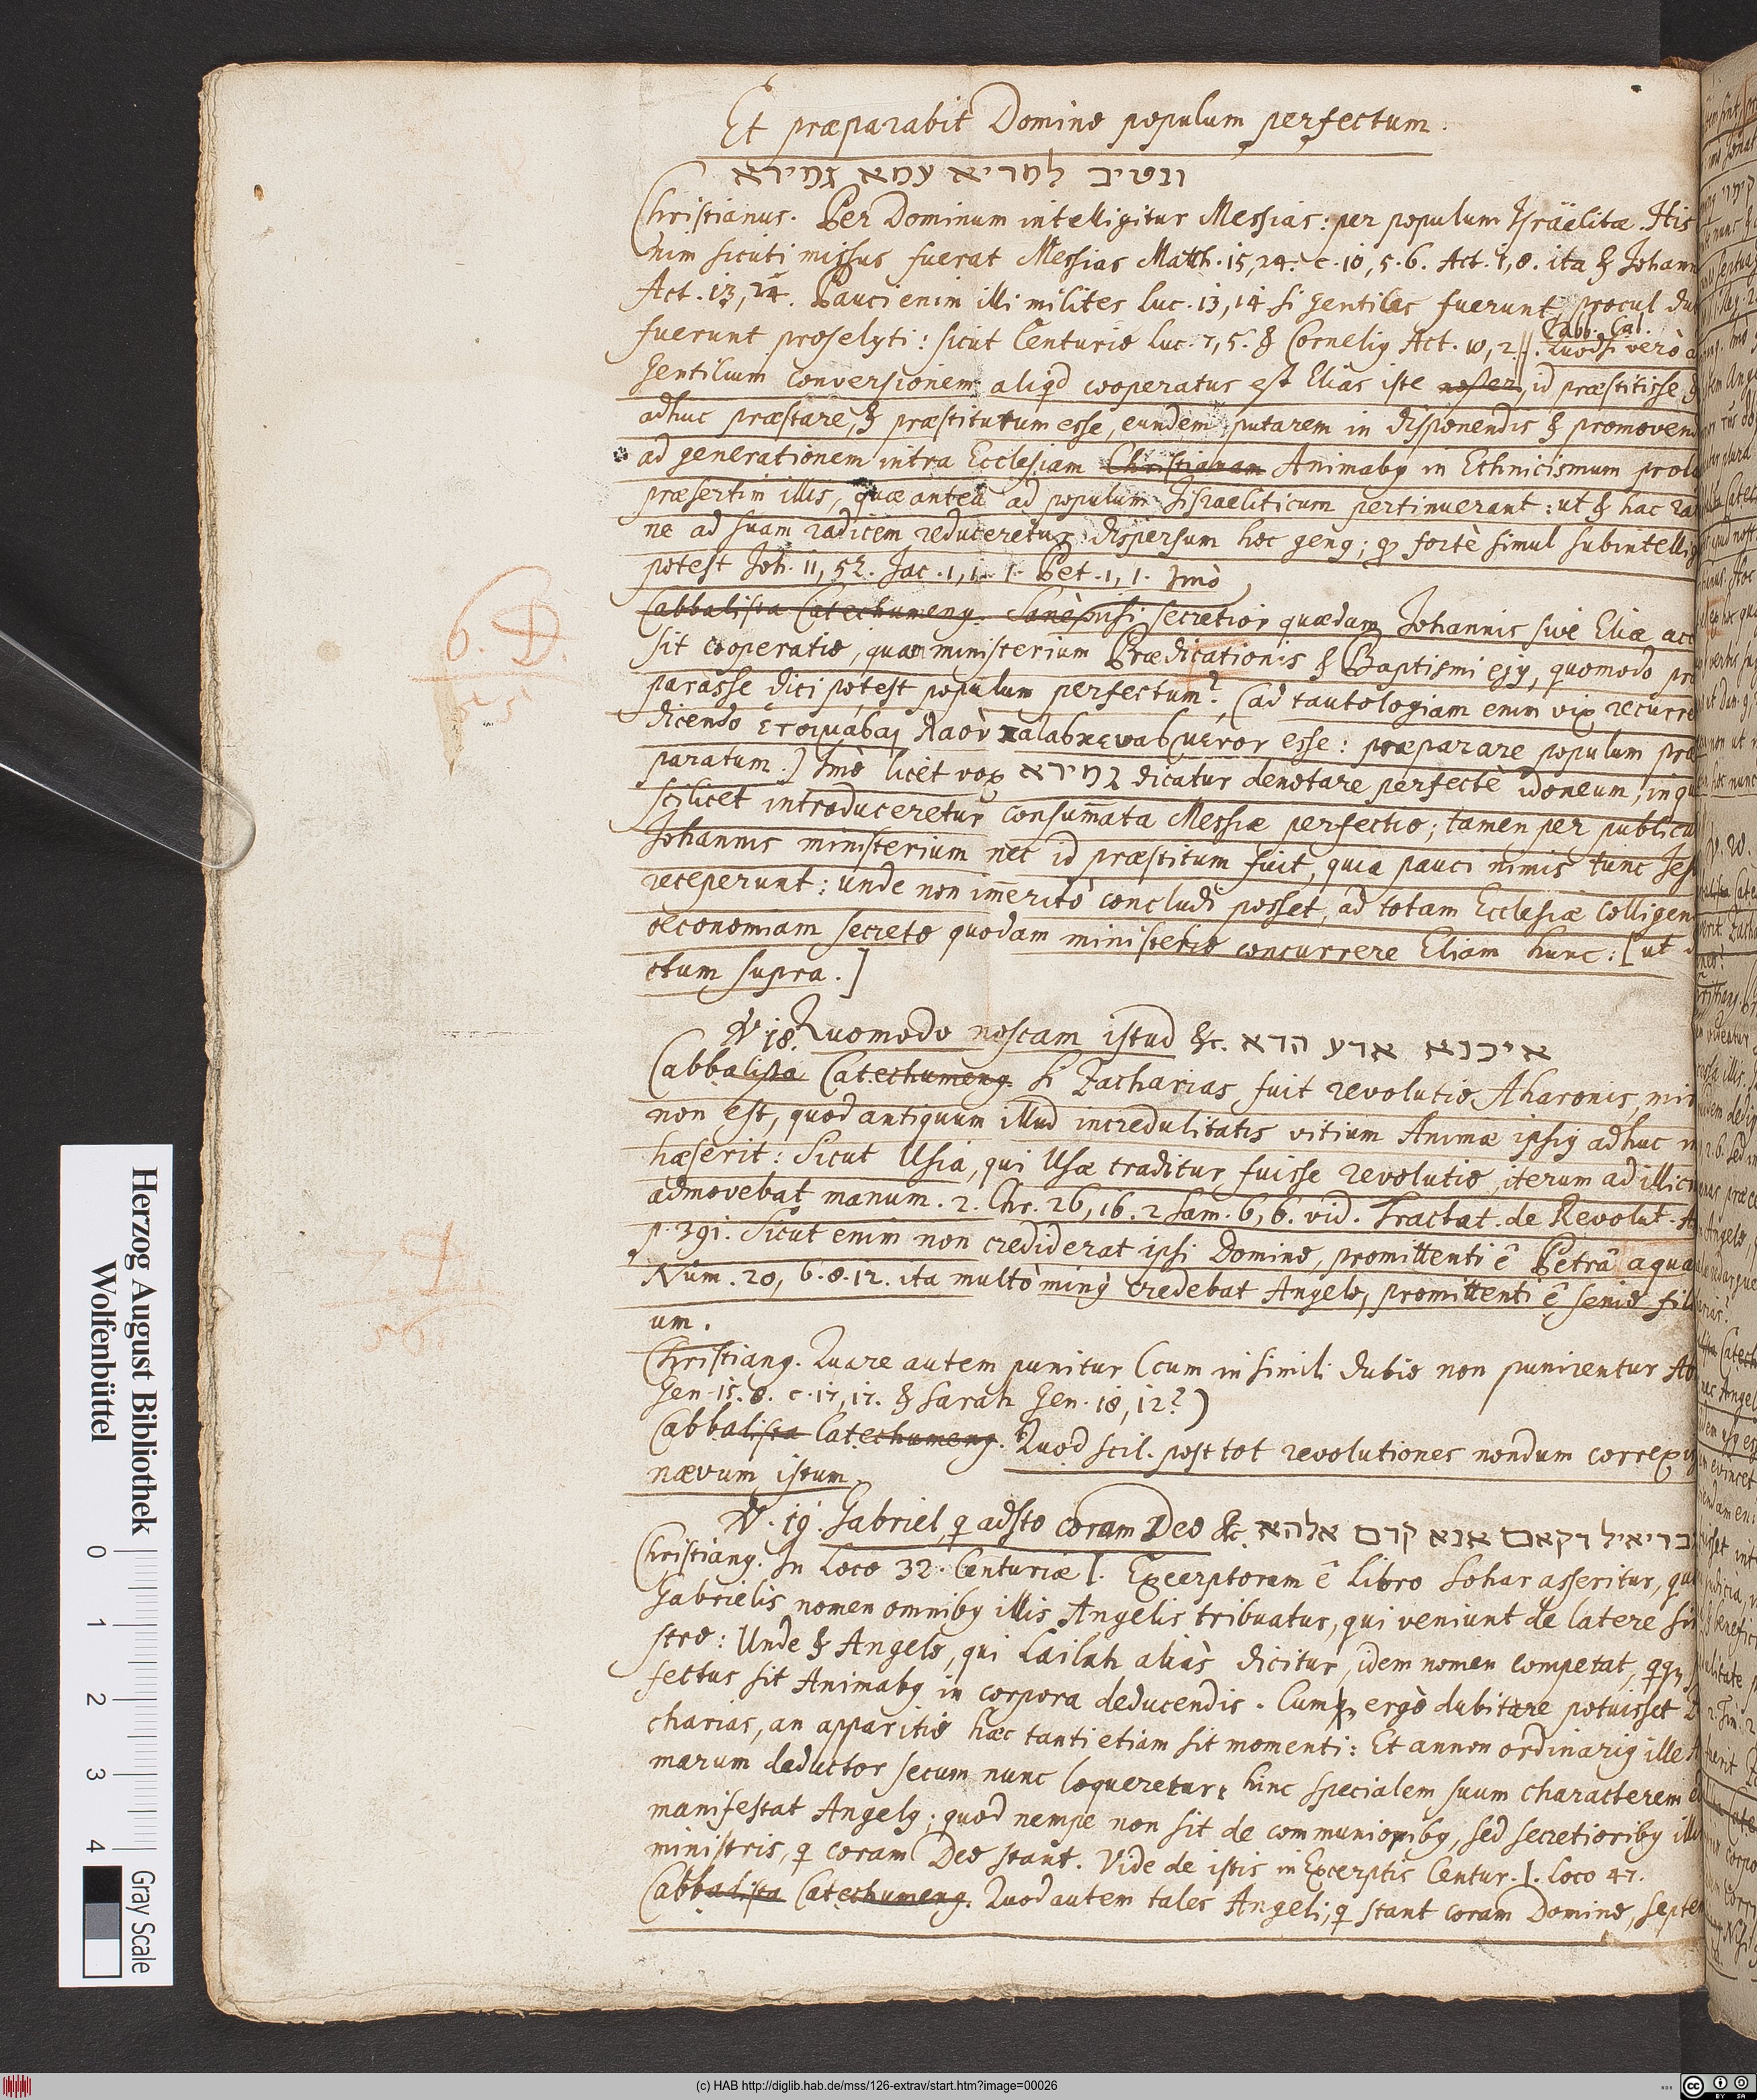 Et præparabit Domino populum perfectum.
ונטיב למריא עמא גמירא
Christianus. Per Dominum intelligitur Messias: per populum Israëlitæ. His
nim sicuti missus fuerat Messias Matth. 15, 24. c. 10, 5. 6. Act. 1, 8. ita & Johann
Act. 13, 24. Pauci enim illi milites Luc. 13, 14 si gentiles fuerunt, procul du
fuerunt proselyti: sicut Centurio Luc. 7, 5. & Cornelig Act. 10, 2. || Cabb. Cat. Quodsi verò a
Gentilium conversionem aliqd cooperatus est Elias iste noster, id præstitisse, &
adhuc præstare, & præstiturum esse, eundem putarem in disponendis & promovend
ad generationem intra Ecclesiam Christianam Animabg in Ethnicismum prola
præsertim illis, quæ antea ad populum Jisraeliticum pertinuerant: ut & hac ra
ne ad suam radicem reduceretur dispersum hoc geng; q forte simul subintellig
potest Joh. 11, 52. Jac. 1, 1. 1. Pet. 1, 1. Imò
Cabbalista Catechumeng. Sanè nisi secretior quædam Johannis sive Eliæ acc
sit cooperatio, quam ministerium Prædicationis & Baptismi ejg, quomodo pr
parasse dici potest populum perfectum? (ad tautologiam enim vix recurre
dicendo ετοιμάσαι λαὸν κατασκευασμενον esse: præparare populum præ
paratum.) Imò licet vox גמירא dicatur denotare perfectè idoneum, in q
scilicet introduceretur consummata Messiæ perfectio; tamen per publicu
Johannis ministerium nec id præstitum fuit, quia pauci nimis tunc Jes
receperunt: unde non immeritò concludi posset, ad totam Ecclesiæ colligen
œconomiam secreto quodam ministerio concurrere Eliam hunc: [ut d
ctum supra.]
V. 18. Quomodo noscam istud &c. איכנא ארע הדא
Cabbalista Catechumeng. Si Zacharias fuit revolutio Aharonis, mir
non est, quod antiquum illud incredulitatis vitium Animæ ipsig adhuc in
hæserit: Sicut Usia, qui Usæ traditur fuisse revolutio, iterum ad illici
admovebat manum. 2. Chr. 26, 16. 2 Sam. 6, 6. vid. Tractat. de Revolut. A
p. 391. Sicut enim non crediderat ipsi Domino, promittenti ê Petrâ aqua
Num. 20, 6. 8. 12. ita multò ming credebat Angelo, promittenti ê senio fili
um.
Christiang. Quare autem punitur (cum in simili dubio non punirentur Ab
Gen. 15. 8. c. 17, 17. & Sarah Gen. 18, 12?)
Cabbalista Catechumeng. Quod scil. post tot revolutiones nondum correxis
nævum istum.
V. 19. Gabriel, q adsto coram Deo &c. גבריאיל דקאם אנא קדם אלהא
Christiang. In Loco 32. Centuriæ I. Excerptorum ê Libro Sohar asseritur, qu
Gabrielis nomen omnibg illis Angelis tribuatur, qui veniunt de latere sin
stro: Unde & Angelo, qui Lailah aliàs dicitur, idem nomen competat, qq
fectus sit Animabg in corpora deducendis. Cum ergò dubitare potuisset Z
charias, an apparitio hæc tanti etiam sit momenti: Et annon ordinarig ille A
marum deductor secum nunc loqueretur: hinc specialem suum characterem e
manifestat Angelg; quod nempe non sit de communioribg, sed secretioribg illi
ministris, q coram Deo stant. Vide de istis in Excerptis Centur. I. Loco 47.
Cabbalista Catechumeng. Quod autem tales Angeli, q stant coram Domino, septem
6. D.
Herzog August Bibliothek
Wolfenbüttel
0 1 2 3 4
Gray Scale
(c) HAB http://diglib.hab.de/mss/126-extrav/start.htm?image=00026